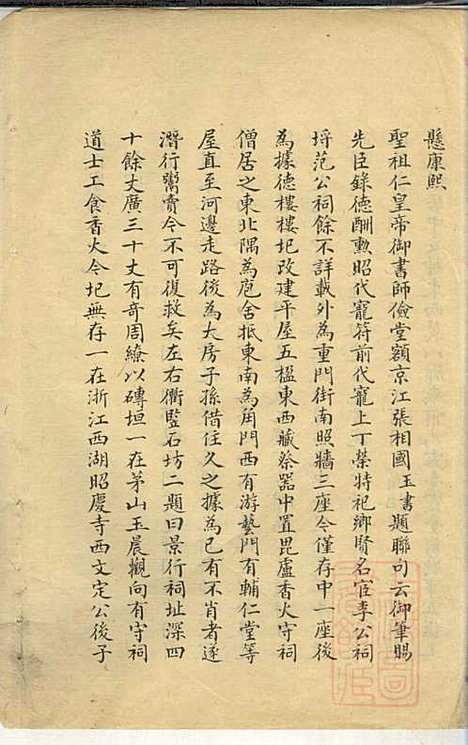 懸康熙
聖祖仁皇帝御書師儉堂額京江張相國玉書題聯句云御筆賜
先臣錄德酬勲昭代寵符前代寵上丁榮特祀鄉賢名宦李公祠
埒范公祠餘不詳載外為重門街南照牆三座令僅存中一座後
為據德樓樓圯改建平屋五楹東西藏祭器中置毘盧香火守祠
僧居之東北隅為庖舍抵東南為角門西有游藝門有輔仁堂等
屋直至河邊走路後為大房子孫借住久之據為己有不肖者遂
潛行鬻賣今不可復救矣左右衢監石坊二題曰景行祠址深四
十餘丈廣三十丈有奇周繚以磚垣一在茅山玉晨觀向有守祠
道士工食香火今圯無存一在浙江西湖昭慶寺西文定公後子